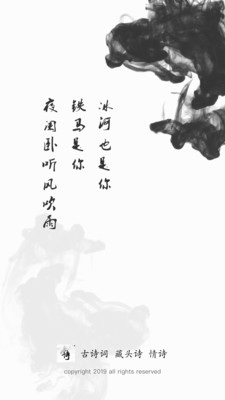 夜阑卧听风吹雨
铁马是你
冰河也是你
情
古诗词 藏头诗 情诗
copyright 2019 all rights reserved